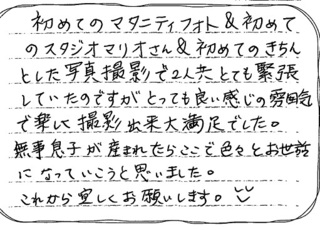 初めてのマタニティフォト&初めて
のスタジオマリオさん&初めてのきちん
とした写真撮影で2人共とても緊張
していたのですがとっても良い感じの雰囲気
で楽しく撮影出来大満足でした。
無事息子が産まれたらここで色々とお世話
になっていこうと思いました。
これから宜しくお願いします。